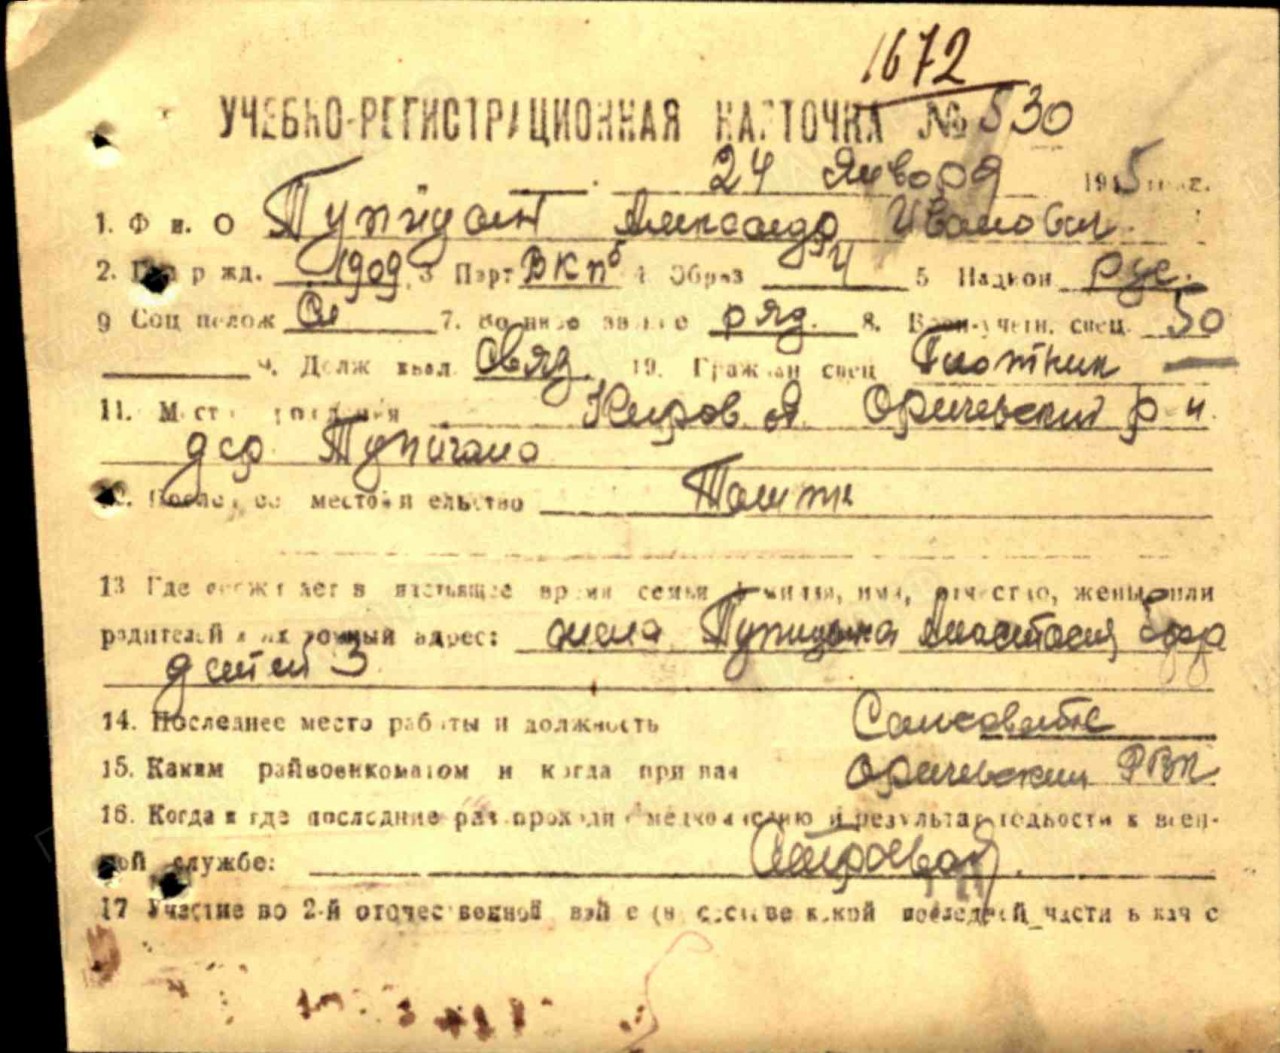 1672
УЧЕБНО-РЕГИСТРАЦИОННАЯ КАРТОЧКА № 530
24 Января 1945 года.
1. Ф и. О Александр Иванович
2. Год рожд. 1909 3 Парт ВКПб 4 Образ 4 5 Национ рус.
9 Соц полож 7. Воинское звание ряд. 8. Воен-учетн. спец. 50
9. Долж квал. Связ. 10. Граждан спец Плотник
11. Место рождения Киров. Оричевский р-н
дер.
12. Последнее местожительство
13 Где проживает в настоящее время семья фамилия, имя, отчество, жены или
родителей и их точный адрес: жена Анастасия
детей 3
14. Последнее место работы и должность
15. Каким райвоенкоматом и когда призван Оричевский РВК
16. Когда и где последние раз проходил медкомиссию и результат годности к воен-
ной службе: Строевой
17 Участие во 2-й отечественной войне (в составе какой последней части в кач с